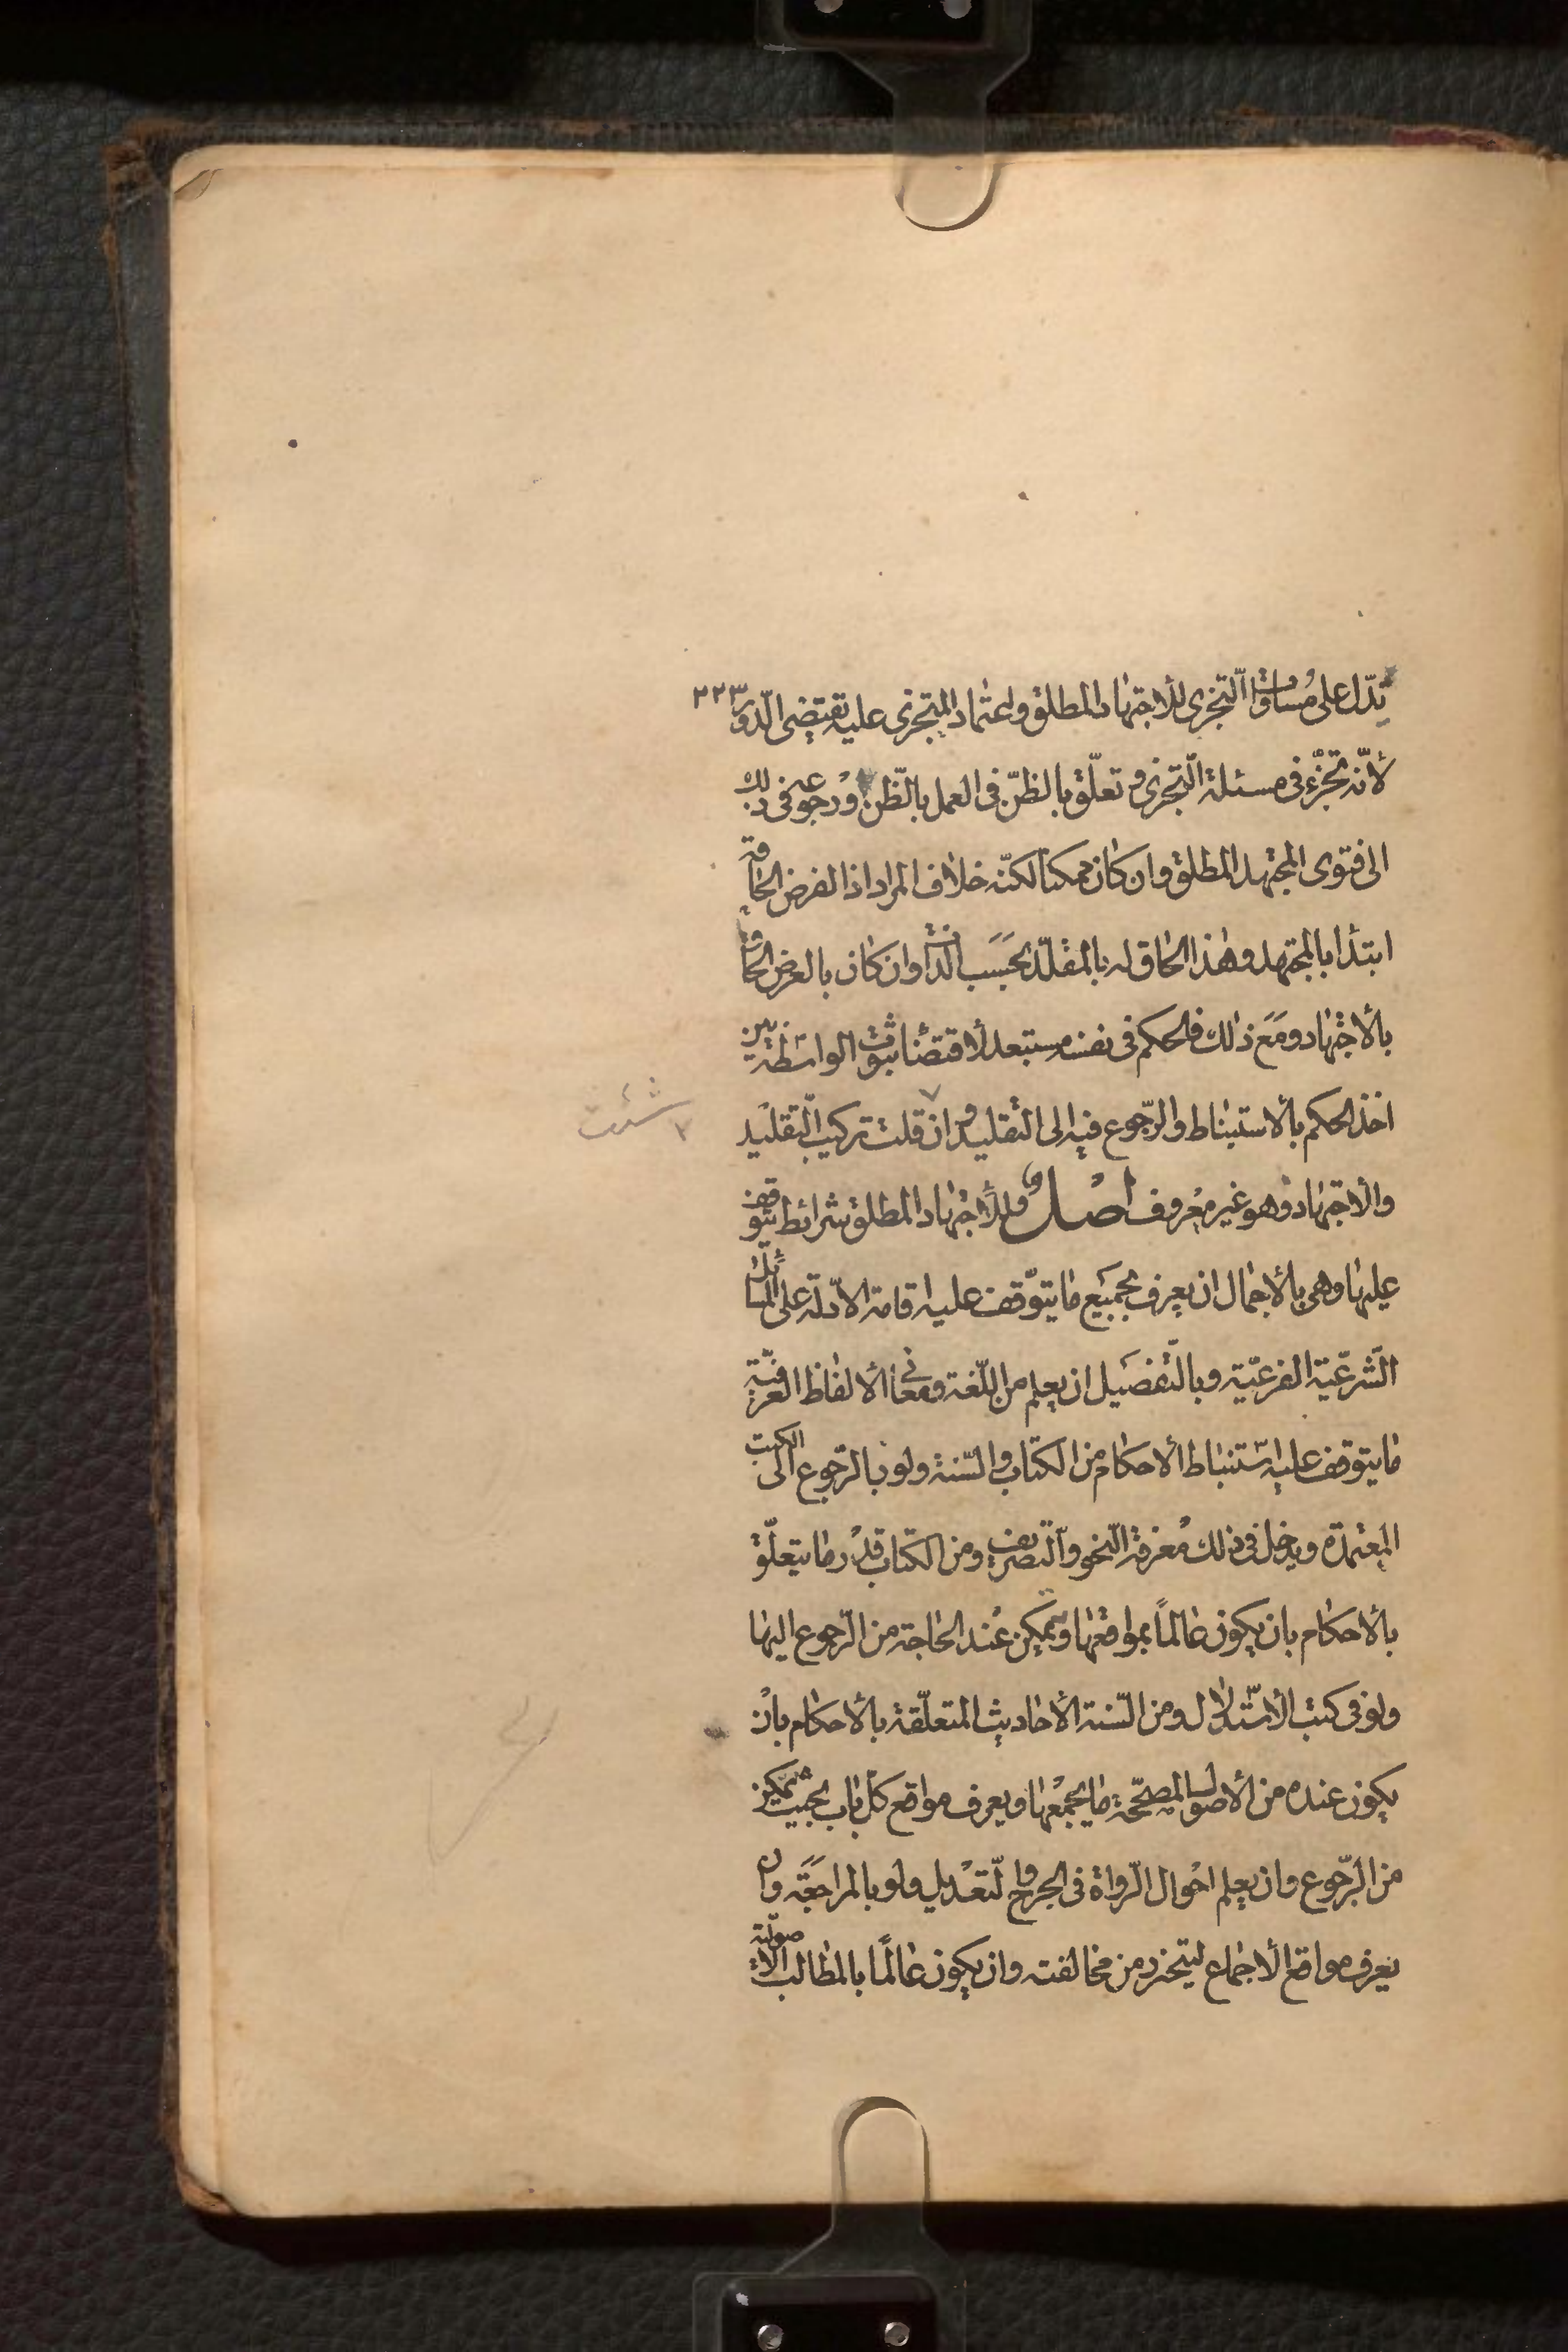 يدّل على مُساواة التّجزى للأجتهاد المطلق واعتماد المتجزى عليه يقتضى الدّور ٢٢٣
لأنّه تجزّء فى مسئلة التّجزى و تعلّق بالظنّ فى العمل بالظّن ورجوعه فى ذلك
الى فتوى المجتهد المطلق وان كان ممكناً لكنّه خلاف المراد اذ الفرض الحاقه
ابتدأ بالمجتهد وهذا الحاق له بالمقلّد بحَسَب الذّات وان كان بالعرض الحاقه
بالأجتهاد ومَعَ ذلك فالحكم فى نفسه مستبعد لأقتضائه ثبوت الواسَطة بين
اخذ الحكم بالأستنباط والرّجوع فيه الى التّقليد وان قلت تركيب التّقليد
شئت
والاجتهاد وهو غير معْروف اصْل وللأجتهاد المطلق شرائط يتوقف
عليها وهى بالأجمال ان يعرف بجميَع ما يتوّقف عليه اقامة الادّلة على المسائل
الشّرعيّة الفرعيّة وبالتّفصَيل ان يعلم من اللّغة ومعانى الألفاظ العرفيّة
ما يتوقف عليه استنباط الأحكام من الكتاب والسّنة ولو بالرّجوع الى الكتب
المعتمدة ويدخل فى ذلك مُعرفة النّحو والتّصريف ومن الكتاب قدْر ما يتعلّق
بالأحكام بان يكون عالماً بمواقعها ويتمكن عْند الحاجة من الرّجوع اليها
ولو فى كتب الأستدلال ومن السّنة الأحاديث المتعلّقة بالأحكام بانْ
يكون عنده من الأصول المصحّحة ما يجمعْها و يعرف مواقع كلّ باب بحيث يتمكن
من الرّجوع وان يعلم احْوال الرّواة فى الجرح والتّعْديل ولو بالمراجَعَة وان
يعرف مواقع الأجماع ليتحرز من مخالفته وان يكون عالمًا بالمطالب الأصوليّة